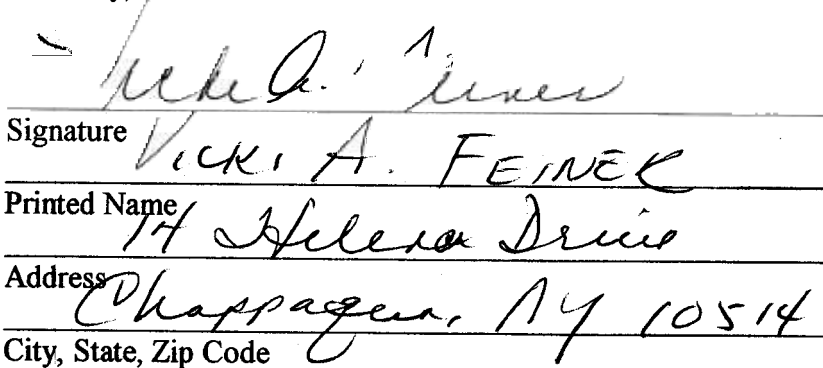 Vicki A. Feiner
Signature
VICKI A. FEINER
Printed Name
14 Helena Drive
Address
Chappaqua, NY 10514
City, State, Zip Code